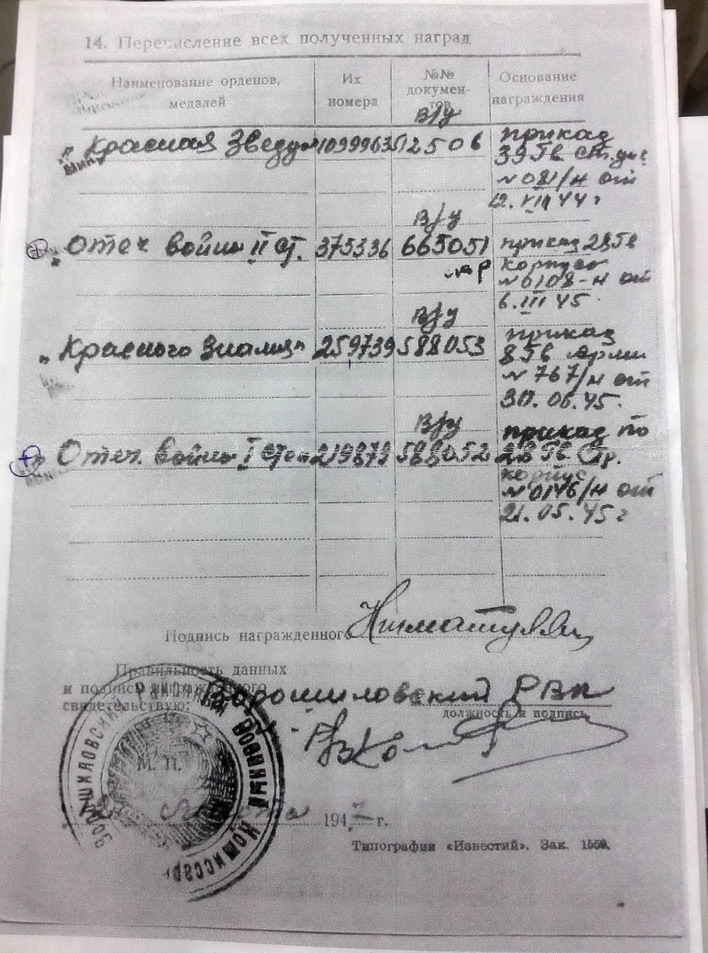 14. Перечисление всех полученных наград
Наименование орденов, медалей
Их номера
№№ документов
Основание награждения
В/у
Красная Звезда 1099963 512506 приказ
39 Гв ст. див
№ 081/н от
12. VIII 44 г
В/у
Отеч войны II ст. 375336 665051 приказ 28 Гв
корпуса
№ 0108-н от
6. III 45.
В/у
Красного Знамени 259739 588053 приказ
8 Гв Арми
№ 767/н от
30. 06. 45.
В/у
Отеч. войны I степ 219879 588052 приказ по
28 Гв. Стр.
корпус
№ 0146/н от
21. 05. 45 г
Подпись награжденного
Правильность данных
и подпись награжденного
свидетельствую: Ворошиловский РВК
должность и подпись
М. П.
194 г.
Ворошиловский Районный Военный Комиссар
Типография «Известий». Зак. 1550.